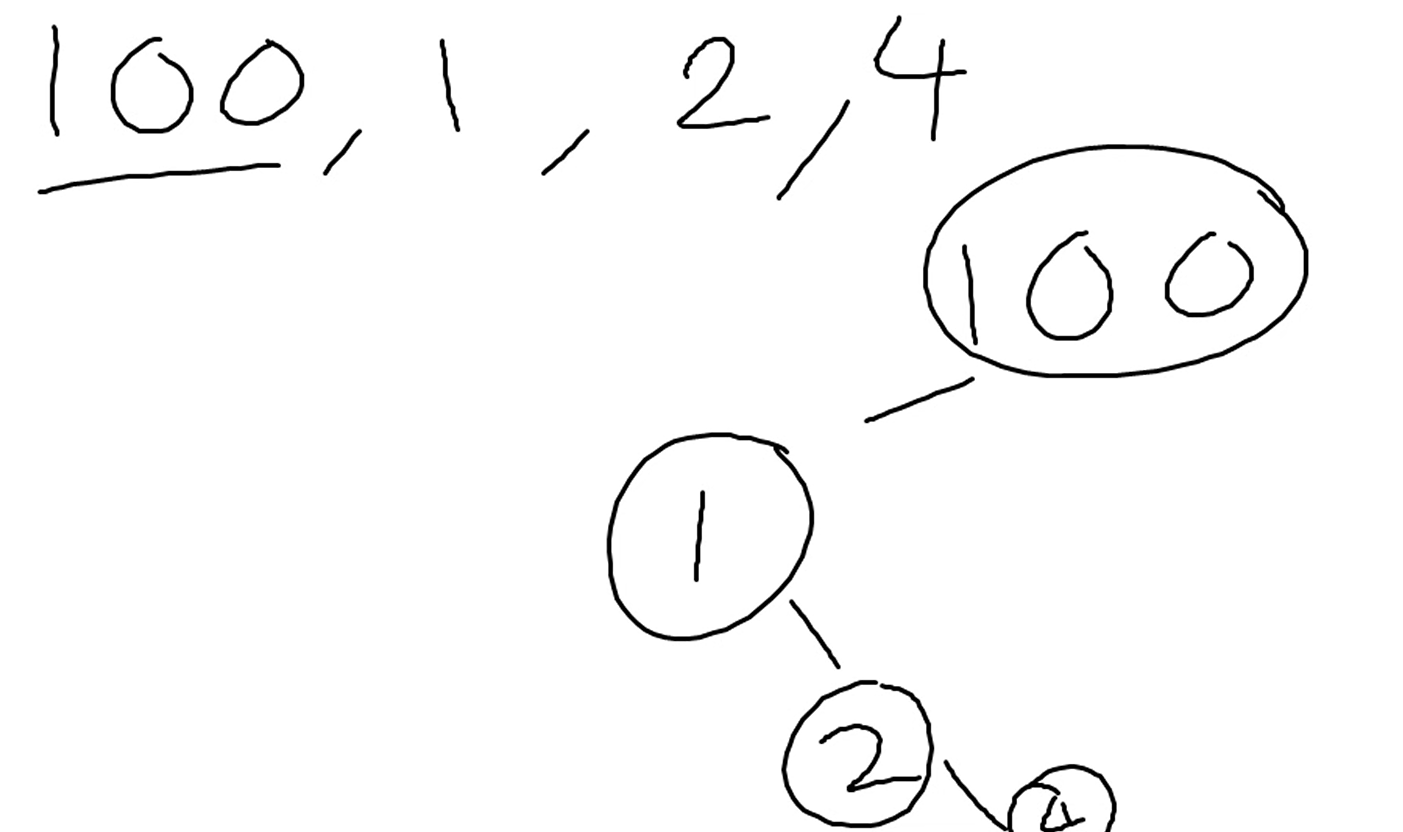 100, 1, 2, 4
100
1
2
4